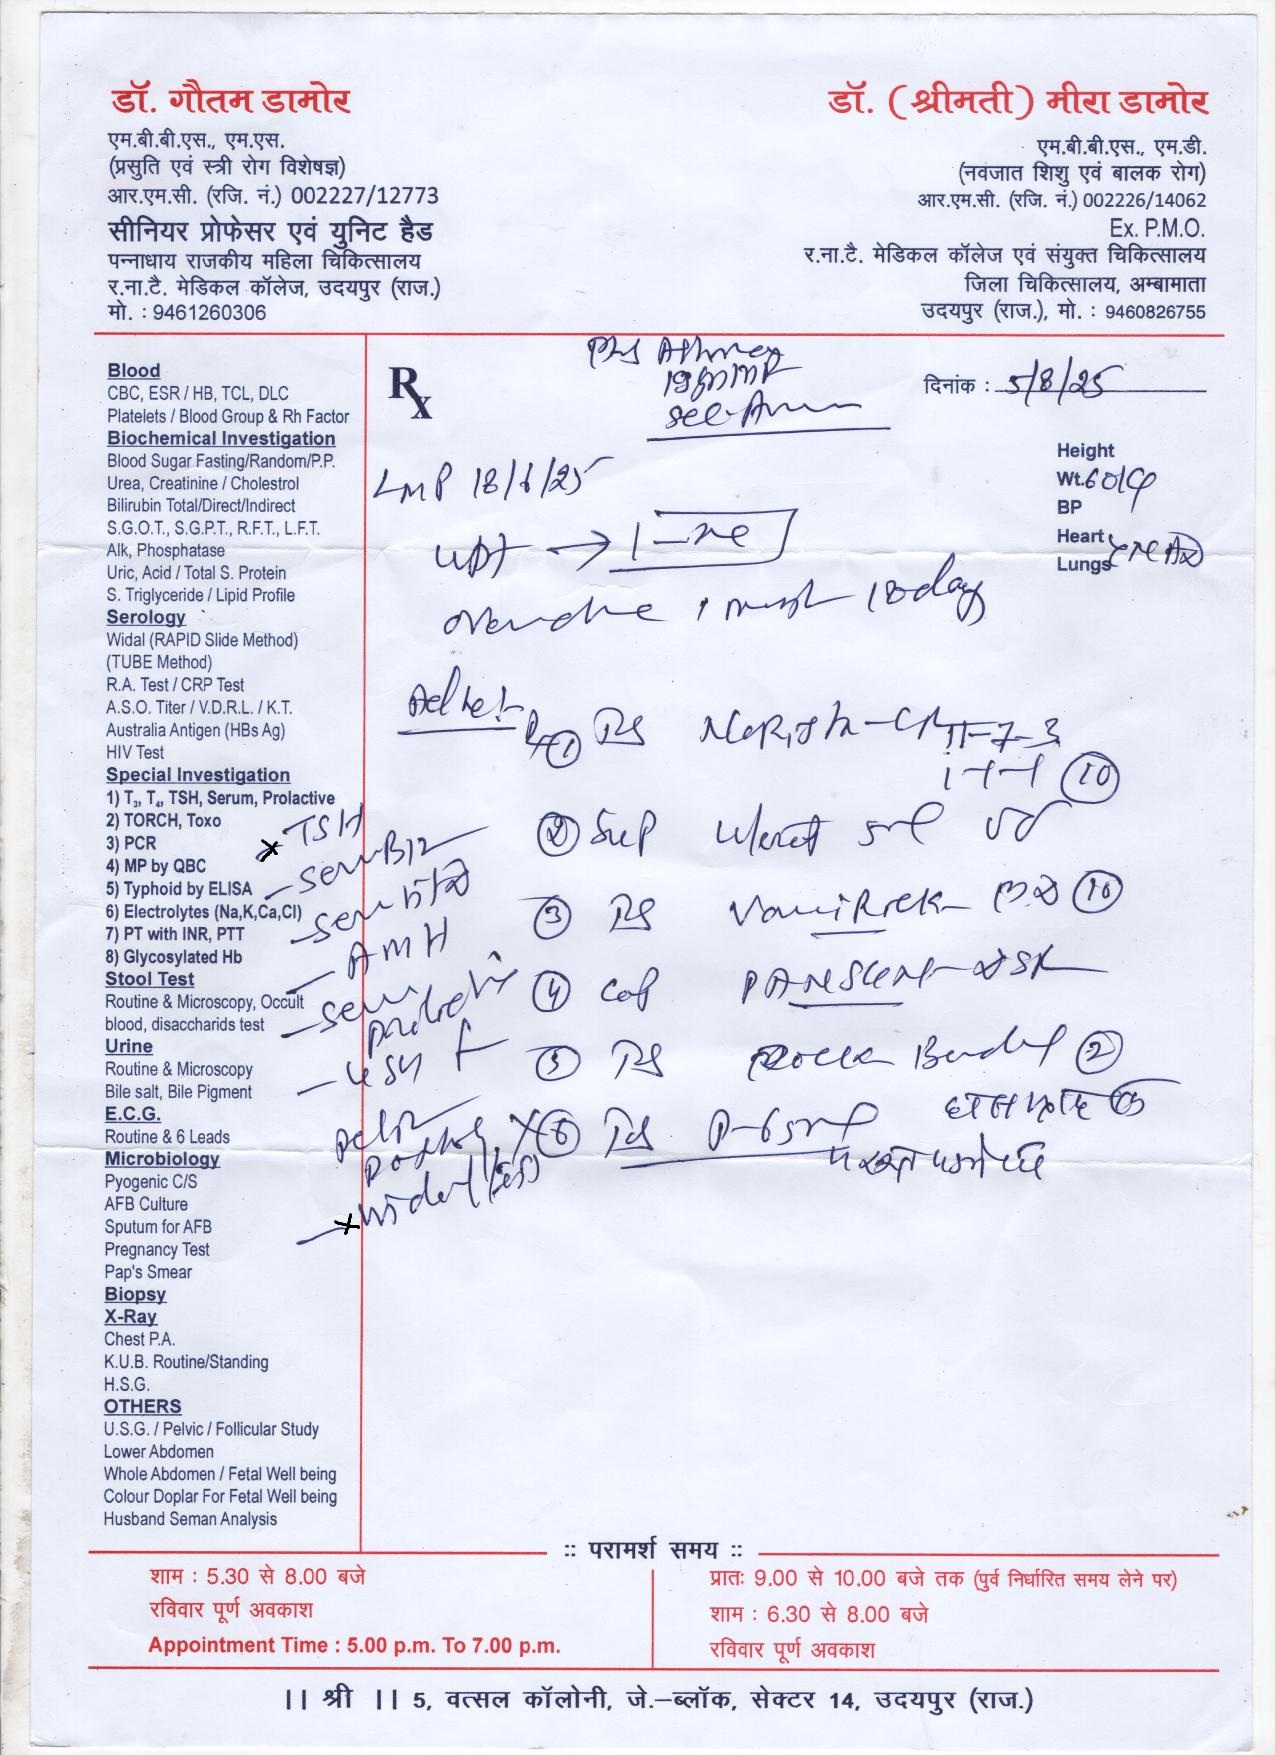 डॉ. गौतम डामोर
एम.बी.बी.एस., एम.एस.
(प्रसुति एवं स्त्री रोग विशेषज्ञ)
आर.एम.सी. (रजि. नं.) 002227/12773
सीनियर प्रोफेसर एवं युनिट हैड
पन्नाधाय राजकीय महिला चिकित्सालय
र.ना.टै. मेडिकल कॉलेज, उदयपुर (राज.)
मो. : 9461260306
डॉ. (श्रीमती) मीरा डामोर
एम.बी.बी.एस., एम.डी.
(नवजात शिशु एवं बालक रोग)
आर.एम.सी. (रजि. नं.) 002226/14062
Ex. P.M.O.
र.ना.टै. मेडिकल कॉलेज एवं संयुक्त चिकित्सालय
जिला चिकित्सालय, अम्बामाता
उदयपुर (राज.), मो. : 9460826755
Blood
CBC, ESR / HB, TCL, DLC
Platelets / Blood Group & Rh Factor
Biochemical Investigation
Blood Sugar Fasting/Random/P.P.
Urea, Creatinine / Cholestrol
Bilirubin Total/Direct/Indirect
S.G.O.T., S.G.P.T., R.F.T., L.F.T.
Alk, Phosphatase
Uric, Acid / Total S. Protein
S. Triglyceride / Lipid Profile
Serology
Widal (RAPID Slide Method)
(TUBE Method)
R.A. Test / CRP Test
A.S.O. Titer / V.D.R.L. / K.T.
Australia Antigen (HBs Ag)
HIV Test
Special Investigation
1) T3, T4, TSH, Serum, Prolactive
2) TORCH, Toxo
3) PCR
4) MP by QBC
5) Typhoid by ELISA
6) Electrolytes (Na,K,Ca,Cl)
7) PT with INR, PTT
8) Glycosylated Hb
Stool Test
Routine & Microscopy, Occult
blood, disaccharids test
Urine
Routine & Microscopy
Bile salt, Bile Pigment
E.C.G.
Routine & 6 Leads
Microbiology
Pyogenic C/S
AFB Culture
Sputum for AFB
Pregnancy Test
Pap's Smear
Biopsy
X-Ray
Chest P.A.
K.U.B. Routine/Standing
H.S.G.
OTHERS
U.S.G. / Pelvic / Follicular Study
Lower Abdomen
Whole Abdomen / Fetal Well being
Colour Doplar For Fetal Well being
Husband Seman Analysis
TSH
Serum B12
Serum
AMH
Serum
Rx
दिनांक : 5/8/25
Height
Wt.
BP
Heart
Lungs
LMP 18/6/25
UPT → -ve
overdue 1 month 18 day
Advice
① Tab
1-1-1 ⑩
② Syp
③ Tab ⑩
④ Cap
⑤ Tab ②
⑥ Tab
:: परामर्श समय ::
शाम : 5.30 से 8.00 बजे
रविवार पूर्ण अवकाश
Appointment Time : 5.00 p.m. To 7.00 p.m.
प्रातः 9.00 से 10.00 बजे तक (पुर्व निर्धारित समय लेने पर)
शाम : 6.30 से 8.00 बजे
रविवार पूर्ण अवकाश
|| श्री || 5, वत्सल कॉलोनी, जे.–ब्लॉक, सेक्टर 14, उदयपुर (राज.)